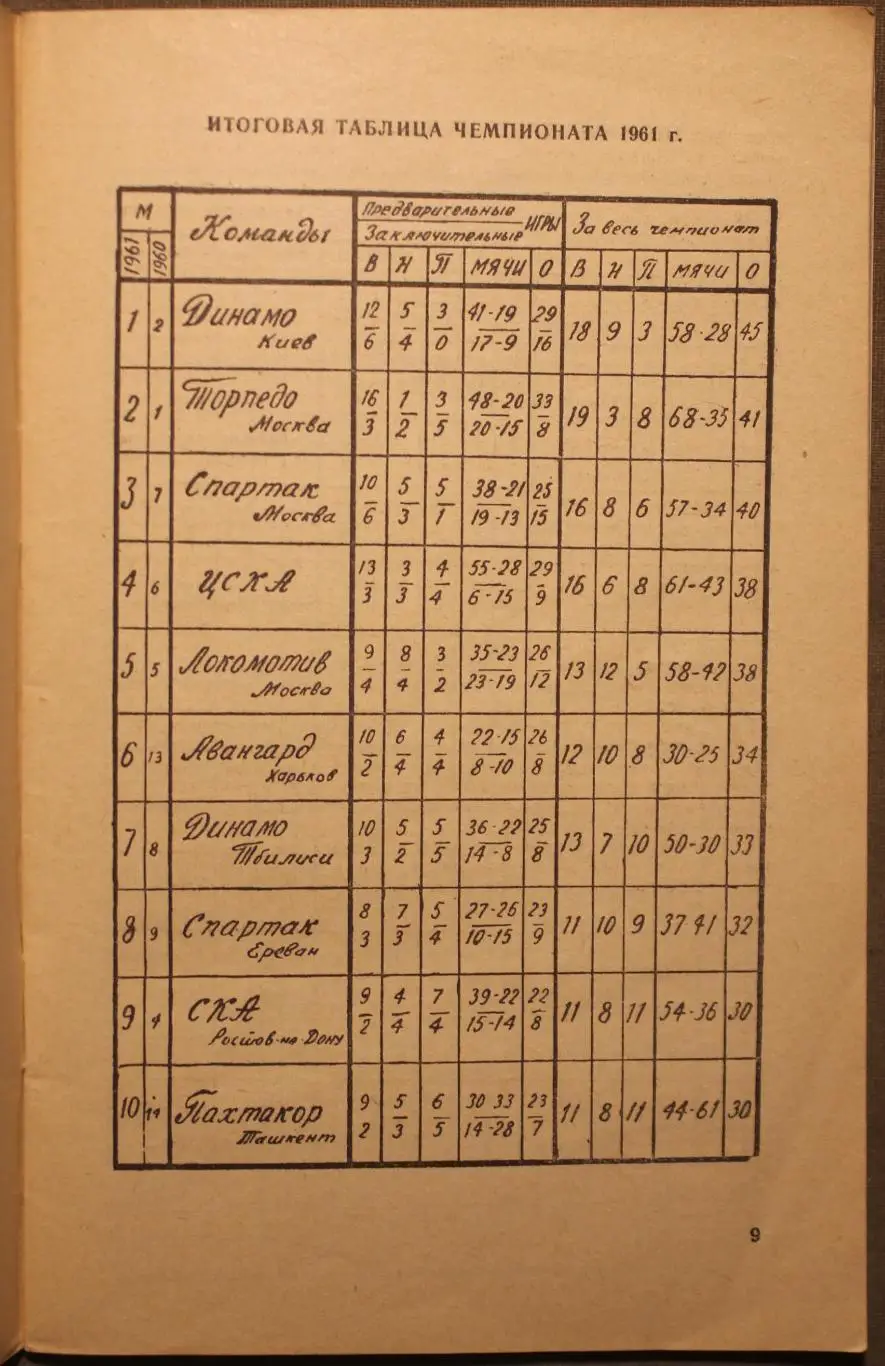 ИТОГОВАЯ ТАБЛИЦА ЧЕМПИОНАТА 1961 г.
М Команды Предварительные ИГРЫ За весь чемпионат
Заключительные
1961 1960 В Н П МЯЧИ О В Н П МЯЧИ О
1 2 Динамо 12 5 3 41-19 29 18 9 3 58-28 45
Киев 6 4 0 17-9 16
2 1 Торпедо 16 1 3 48-20 33 19 3 8 68-35 41
Москва 3 2 5 20-15 8
3 7 Спартак 10 5 5 38-21 25 16 8 6 57-34 40
Москва 6 3 1 19-13 15
4 6 ЦСКА 13 3 4 55-28 29 16 6 8 61-43 38
3 3 4 6-15 9
5 5 Локомотив 9 8 3 35-23 26 13 12 5 58-42 38
Москва 4 4 2 23-19 12
6 13 Авангард 10 6 4 22-15 26 12 10 8 30-25 34
Харьков 2 4 4 8-10 8
7 8 Динамо 10 5 5 36-22 25 13 7 10 50-30 33
Тбилиси 3 2 5 14-8 8
8 9 Спартак 8 7 5 27-26 23 11 10 9 37 41 32
Ереван 3 3 4 10-15 9
9 4 СКА 9 4 7 39-22 22 11 8 11 54-36 30
Ростов-на-Дону 2 4 4 15-14 8
10 Пахтакор 9 5 6 30 33 23 11 8 11 44-61 30
Ташкент 2 3 5 14-28 7
9